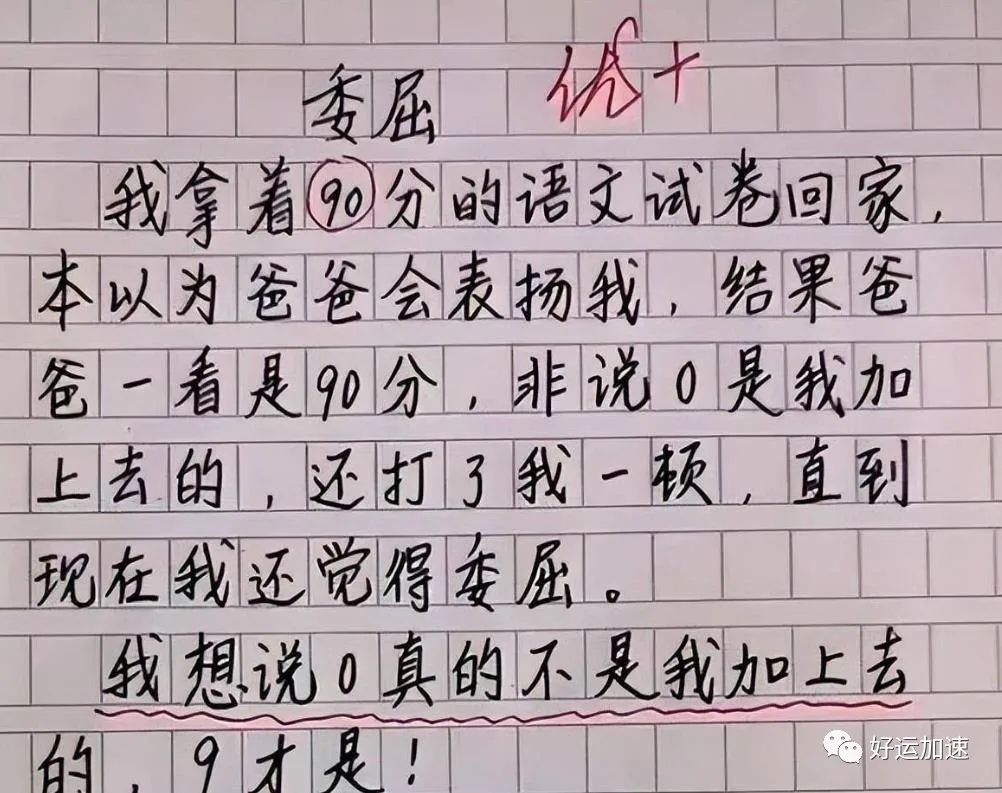 委屈 优+
我拿着90分的语文试卷回家，
本以为爸爸会表扬我，结果爸
爸一看是90分，非说0是我加
上去的，还打了我一顿，直到
现在我还觉得委屈。
我想说0真的不是我加上去
的，9才是！
好运加速